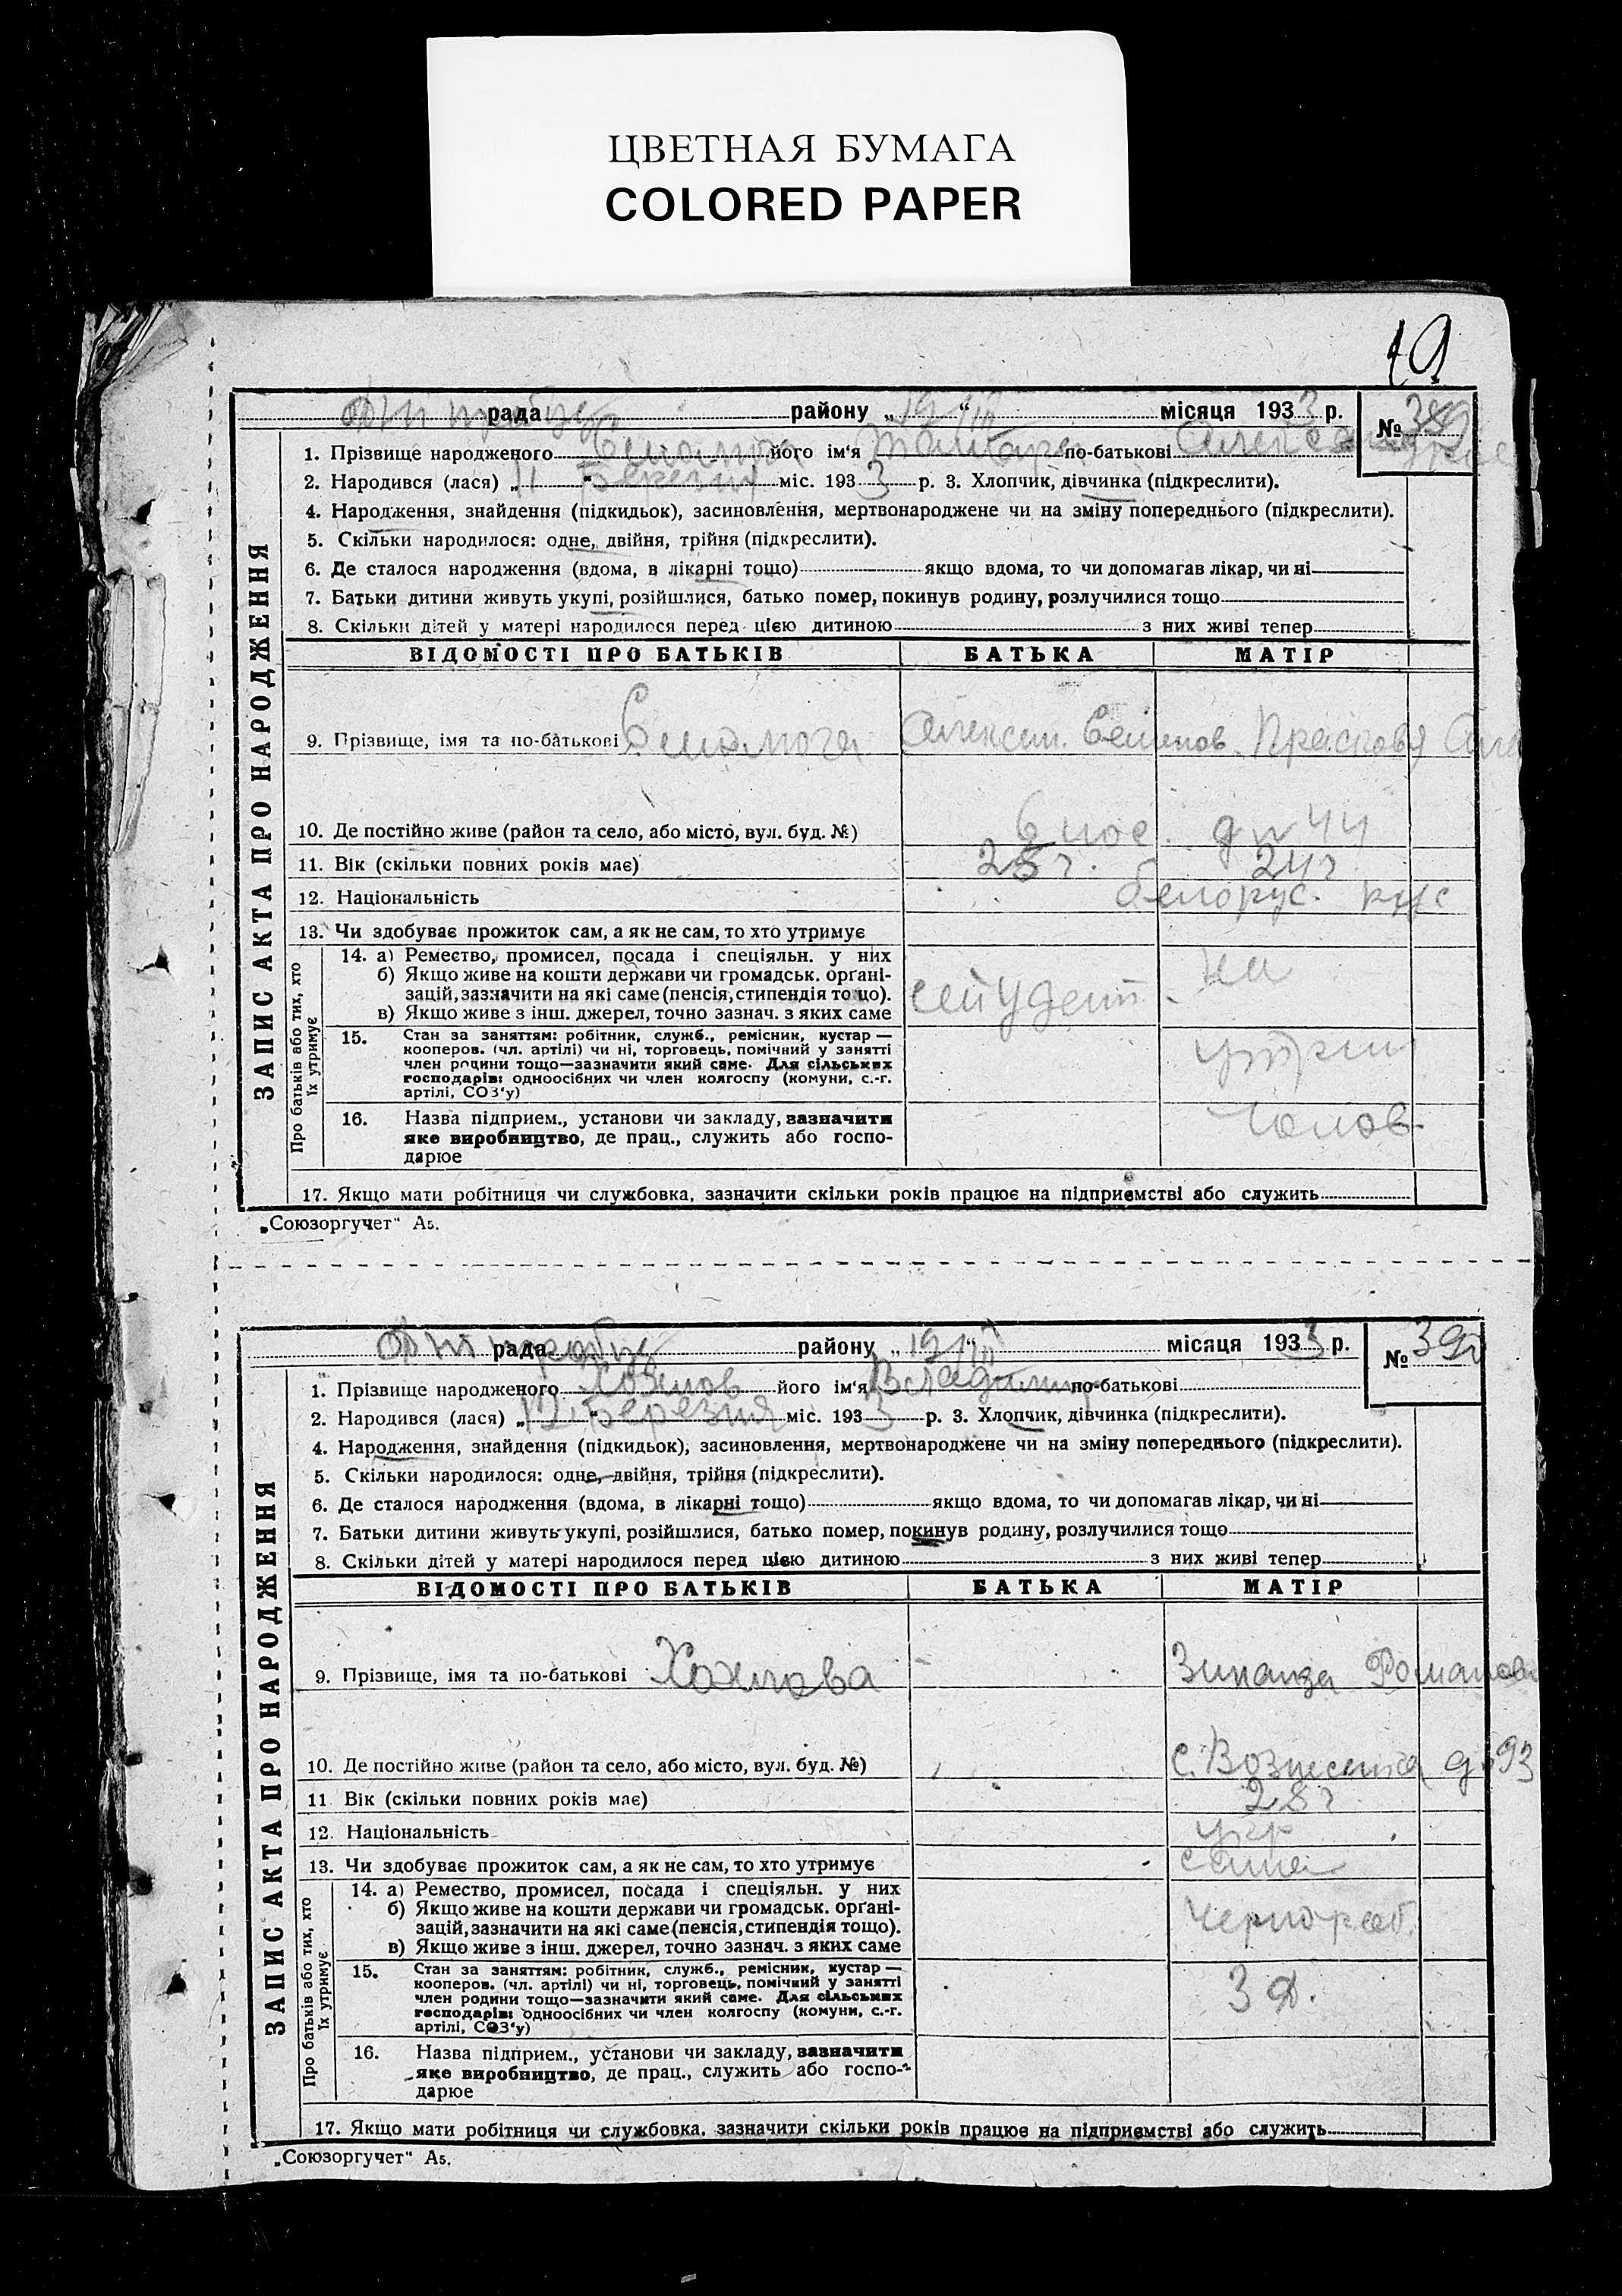 ЦВЕТНАЯ БУМАГА
COLORED PAPER
19
рада району „19/III“ місяця 1933 р. № 389
1. Прізвище народженого його ім'я Тамара по-батькові Александров
2. Народився (лася) „11“ Березня міс. 1933 р. 3. Хлопчик, дівчинка (підкреслити).
4. Народження, знайдення (підкидьок), засиновлення, мертвонароджене чи на зміну попереднього (підкреслити).
5. Скільки народилося: одне, двійня, трійня (підкреслити).
6. Де сталося народження (вдома, в лікарні тощо) якщо вдома, то чи допомагав лікар, чи ні
7. Батьки дитини живуть укупі, розійшлися, батько помер, покинув родину, розлучилися тощо
8. Скільки дітей у матері народилося перед цією дитиною з них живі тепер
ЗАПИС АКТА ПРО НАРОДЖЕННЯ
ВІДОМОСТІ ПРО БАТЬКІВ БАТЬКА МАТІР
9. Прізвище, імя та по-батькові Александ. Семенов. Прасковя
10. Де постійно живе (район та село, або місто, вул. буд. №) 6 пос. д № 44
11. Вік (скільки повних років має) 25 г. 24 г
12. Національність белорус. рус
13. Чи здобуває прожиток сам, а як не сам, то хто утримує
Про батьків або тих, хто їх утримує
14. а) Ремество, промисел, посада і спеціяльн. у них
б) Якщо живе на кошти держави чи громадськ. орґані-
зацій, зазначити на які саме (пенсія, стипендія тощо).
в) Якщо живе з інш. джерел, точно зазнач. з яких саме
студент. на
15. Стан за заняттям: робітник, служб., ремісник, кустар —
кооперов. (чл. артілі) чи ні, торговець, помічний у занятті
член родини тощо—зазначити який саме. Для сільських
господарів: одноосібних чи член колгоспу (комуни, с.-г.
артілі, СОЗ'у)
утрим
16. Назва підприєм., установи чи закладу, зазначити
яке виробництво, де прац., служить або госпо-
дарює
чолов.
17. Якщо мати робітниця чи службовка, зазначити скільки років працює на підприємстві або служить
„Союзоргучет“ А5.
рада району „19/III“ місяця 1933 р. № 390
1. Прізвище народженого його ім'я Владимир по-батькові
2. Народився (лася) „12“ Березня міс. 1933 р. 3. Хлопчик, дівчинка (підкреслити).
4. Народження, знайдення (підкидьок), засиновлення, мертвонароджене чи на зміну попереднього (підкреслити).
5. Скільки народилося: одне, двійня, трійня (підкреслити).
6. Де сталося народження (вдома, в лікарні тощо) якщо вдома, то чи допомагав лікар, чи ні
7. Батьки дитини живуть укупі, розійшлися, батько помер, покинув родину, розлучилися тощо
8. Скільки дітей у матері народилося перед цією дитиною з них живі тепер
ЗАПИС АКТА ПРО НАРОДЖЕННЯ
ВІДОМОСТІ ПРО БАТЬКІВ БАТЬКА МАТІР
9. Прізвище, імя та по-батькові Зинаида Романовн
10. Де постійно живе (район та село, або місто, вул. буд. №) с. Вознесенка д 93
11 Вік (скільки повних років має) 28 г
12. Національність укр
13. Чи здобуває прожиток сам, а як не сам, то хто утримує сама
Про батьків або тих, хто їх утримує
14. а) Ремество, промисел, посада і спеціяльн. у них
б) Якщо живе на кошти держави чи громадськ. орґані-
зацій, зазначити на які саме (пенсія, стипендія тощо).
в) Якщо живе з інш. джерел, точно зазнач. з яких саме
чернораб.
15. Стан за заняттям: робітник, служб., ремісник, кустар —
кооперов. (чл. артілі) чи ні, торговець, помічний у занятті
член родини тощо—зазначити який саме. Для сільських
господарів: одноосібних чи член колгоспу (комуни, с.-г.
артілі, СОЗ'у)
16. Назва підприєм., установи чи закладу, зазначити
яке виробництво, де прац., служить або госпо-
дарює
17. Якщо мати робітниця чи службовка, зазначити скільки років працює на підприємстві або служить
„Союзоргучет“ А5.